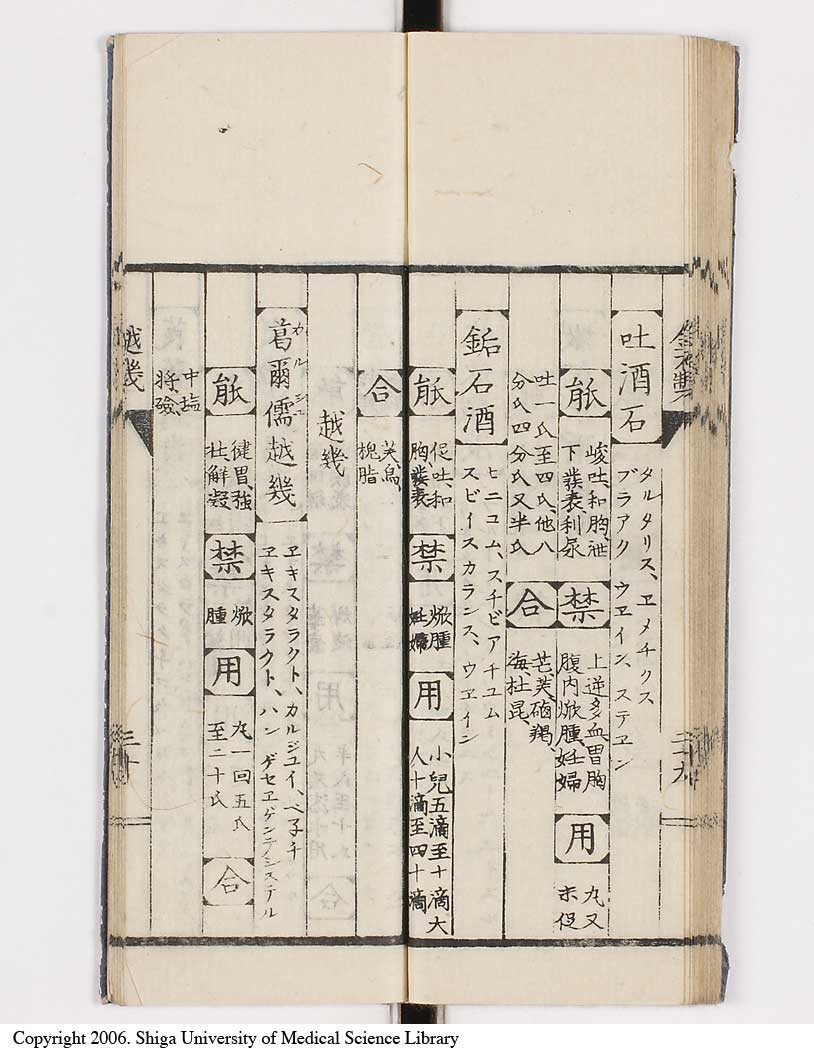 吐酒石
タルタリス、ヱメチクス
ブラアク ウヱイン、ステヱン
能
峻吐、和胸、泄
下、發表、利尿
禁
上逆多血胃胸
腹内焮腫、妊婦
用
丸又
末促
吐一氏至四氏、他八
分氏四分氏又半氏
合
芒、芙、硇、羯、
海、杜、昆、
鉐石酒
ヒニコム、スチビアチユム
スピイスカランス、ウヱイン
能
促吐、和
胸、發表
禁
焮腫
妊婦
用
小兒五滴至十滴大
人十滴至四十滴
合
芙、烏、
槐、脂
越幾
葛爾儒越幾
カル ジユ
ヱキスタラクト、カルジユイ、ベ子チ
ヱキスタラクト、ハン ゲセヱゲンデ、ヂステル
能
健胃、強
壮、解凝
禁
焮
腫
用
丸一回五氏
至二十氏
合
中、塩
将、礆
越幾
三十
二十九
Copyright 2006. Shiga University of Medical Science Library